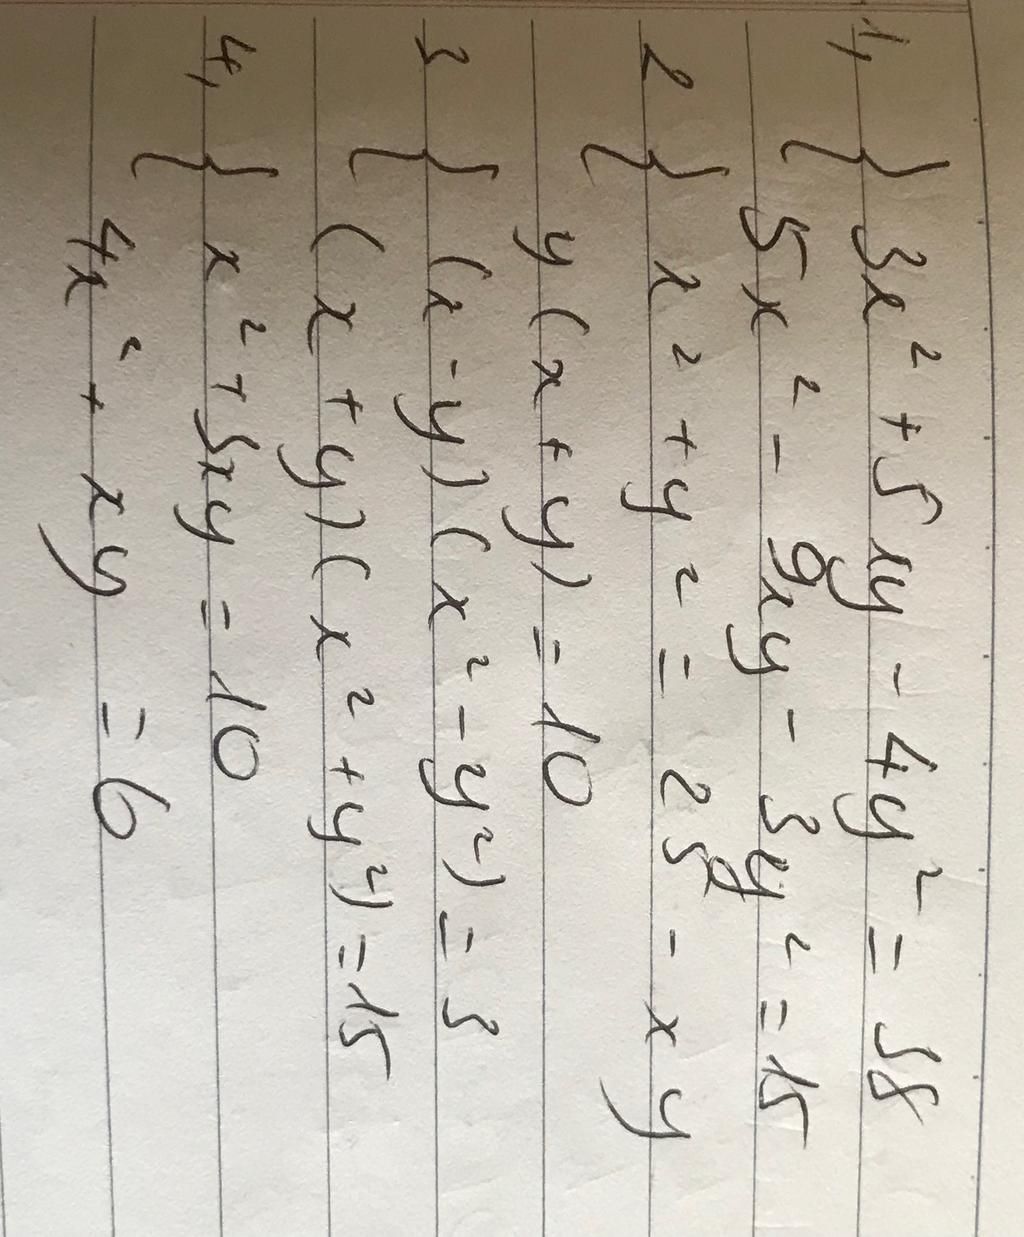 1, { 3x² + 5xy - 4y² = 38
5x² - 9xy - 3y² = 15
2 { x² + y² = 25 - xy
y(x + y) = 10
3 { (x - y)(x² - y²) = 3
(x + y)(x² + y²) = 15
4, { x² + 3xy = 10
4x² + xy = 6